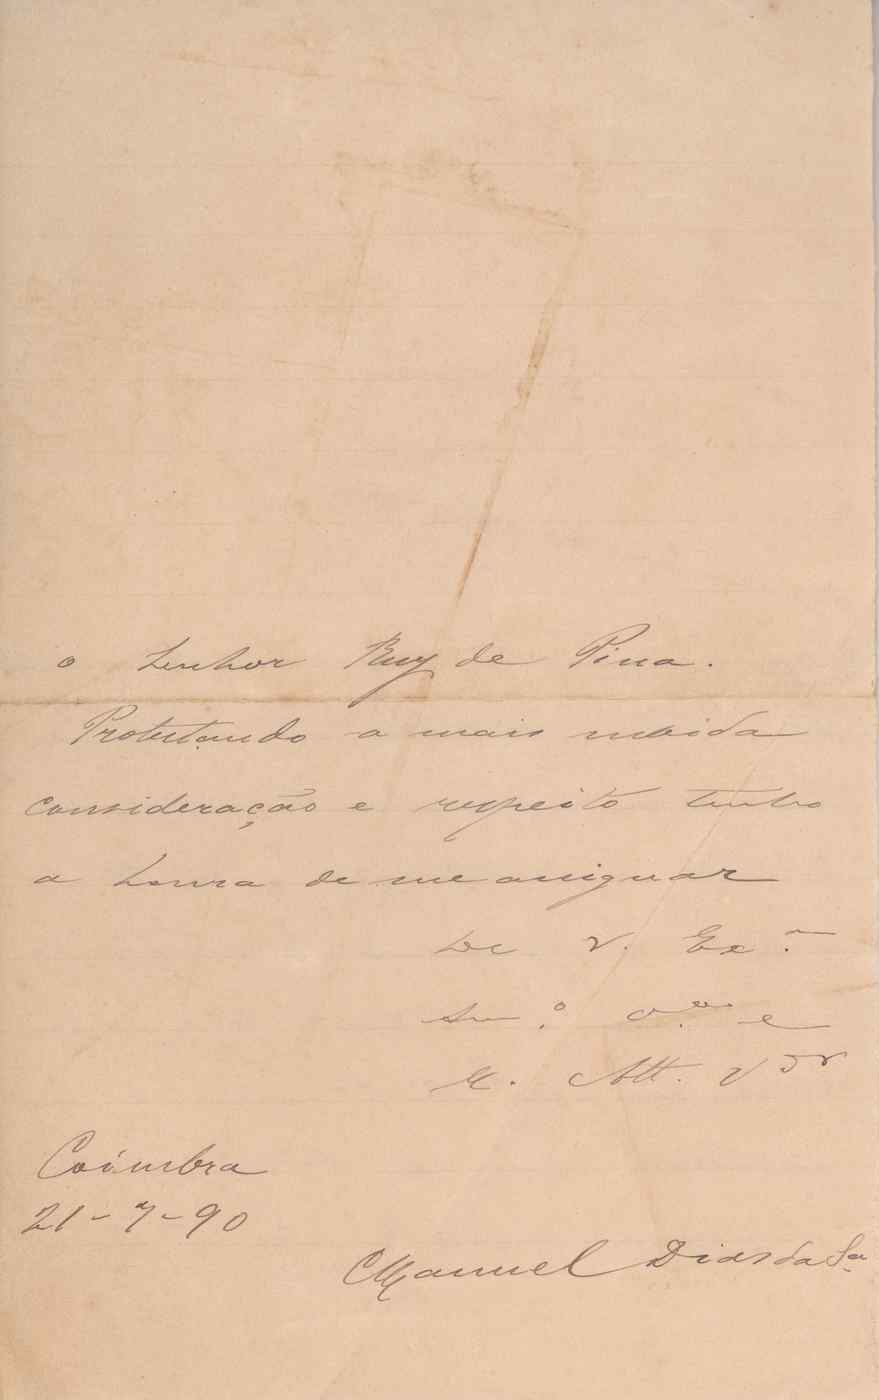 o Senhor Ruy de Pina.
Protestando a mais subida
consideração e respeito tenho
a honra de me assignar
De V. Ex.ª
e
M. Att. V.dor
Coimbra
21-7-90
Manuel Dias da Sa